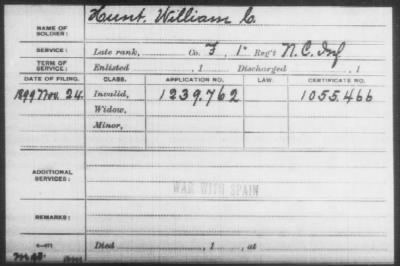 NAME OF SOLDIER: Hunt, William C.
SERVICE: Late rank, Co. F, 1" Reg't N.C. Inf
TERM OF SERVICE: Enlisted , 1 Discharged , 1
DATE OF FILING. CLASS. APPLICATION NO. LAW. CERTIFICATE NO.
1899 Nov. 24. Invalid, 1239.762 1055.466
Widow,
Minor,
ADDITIONAL SERVICES:
WAR WITH SPAIN
REMARKS:
Died , 1 , at